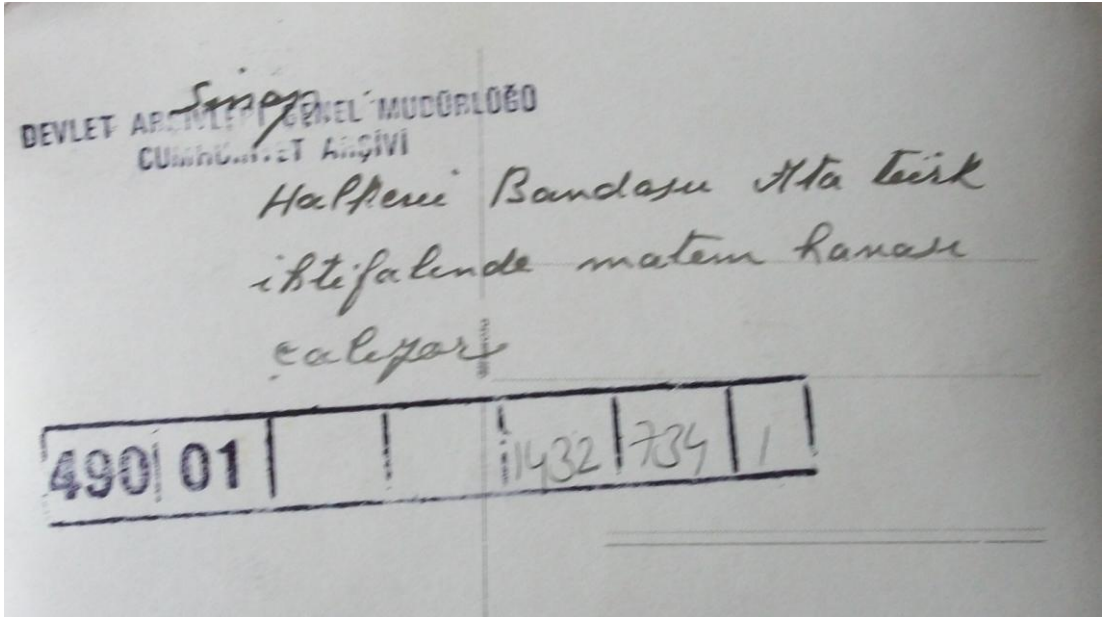 Sinop
DEVLET ARŞİVLERİ GENEL MÜDÜRLÜĞÜ
CUMHURİYET ARŞİVİ
Halkevi Bandosu Ata türk
ihtifalinde matem havası
çalıyor
490 01 1432 734 1